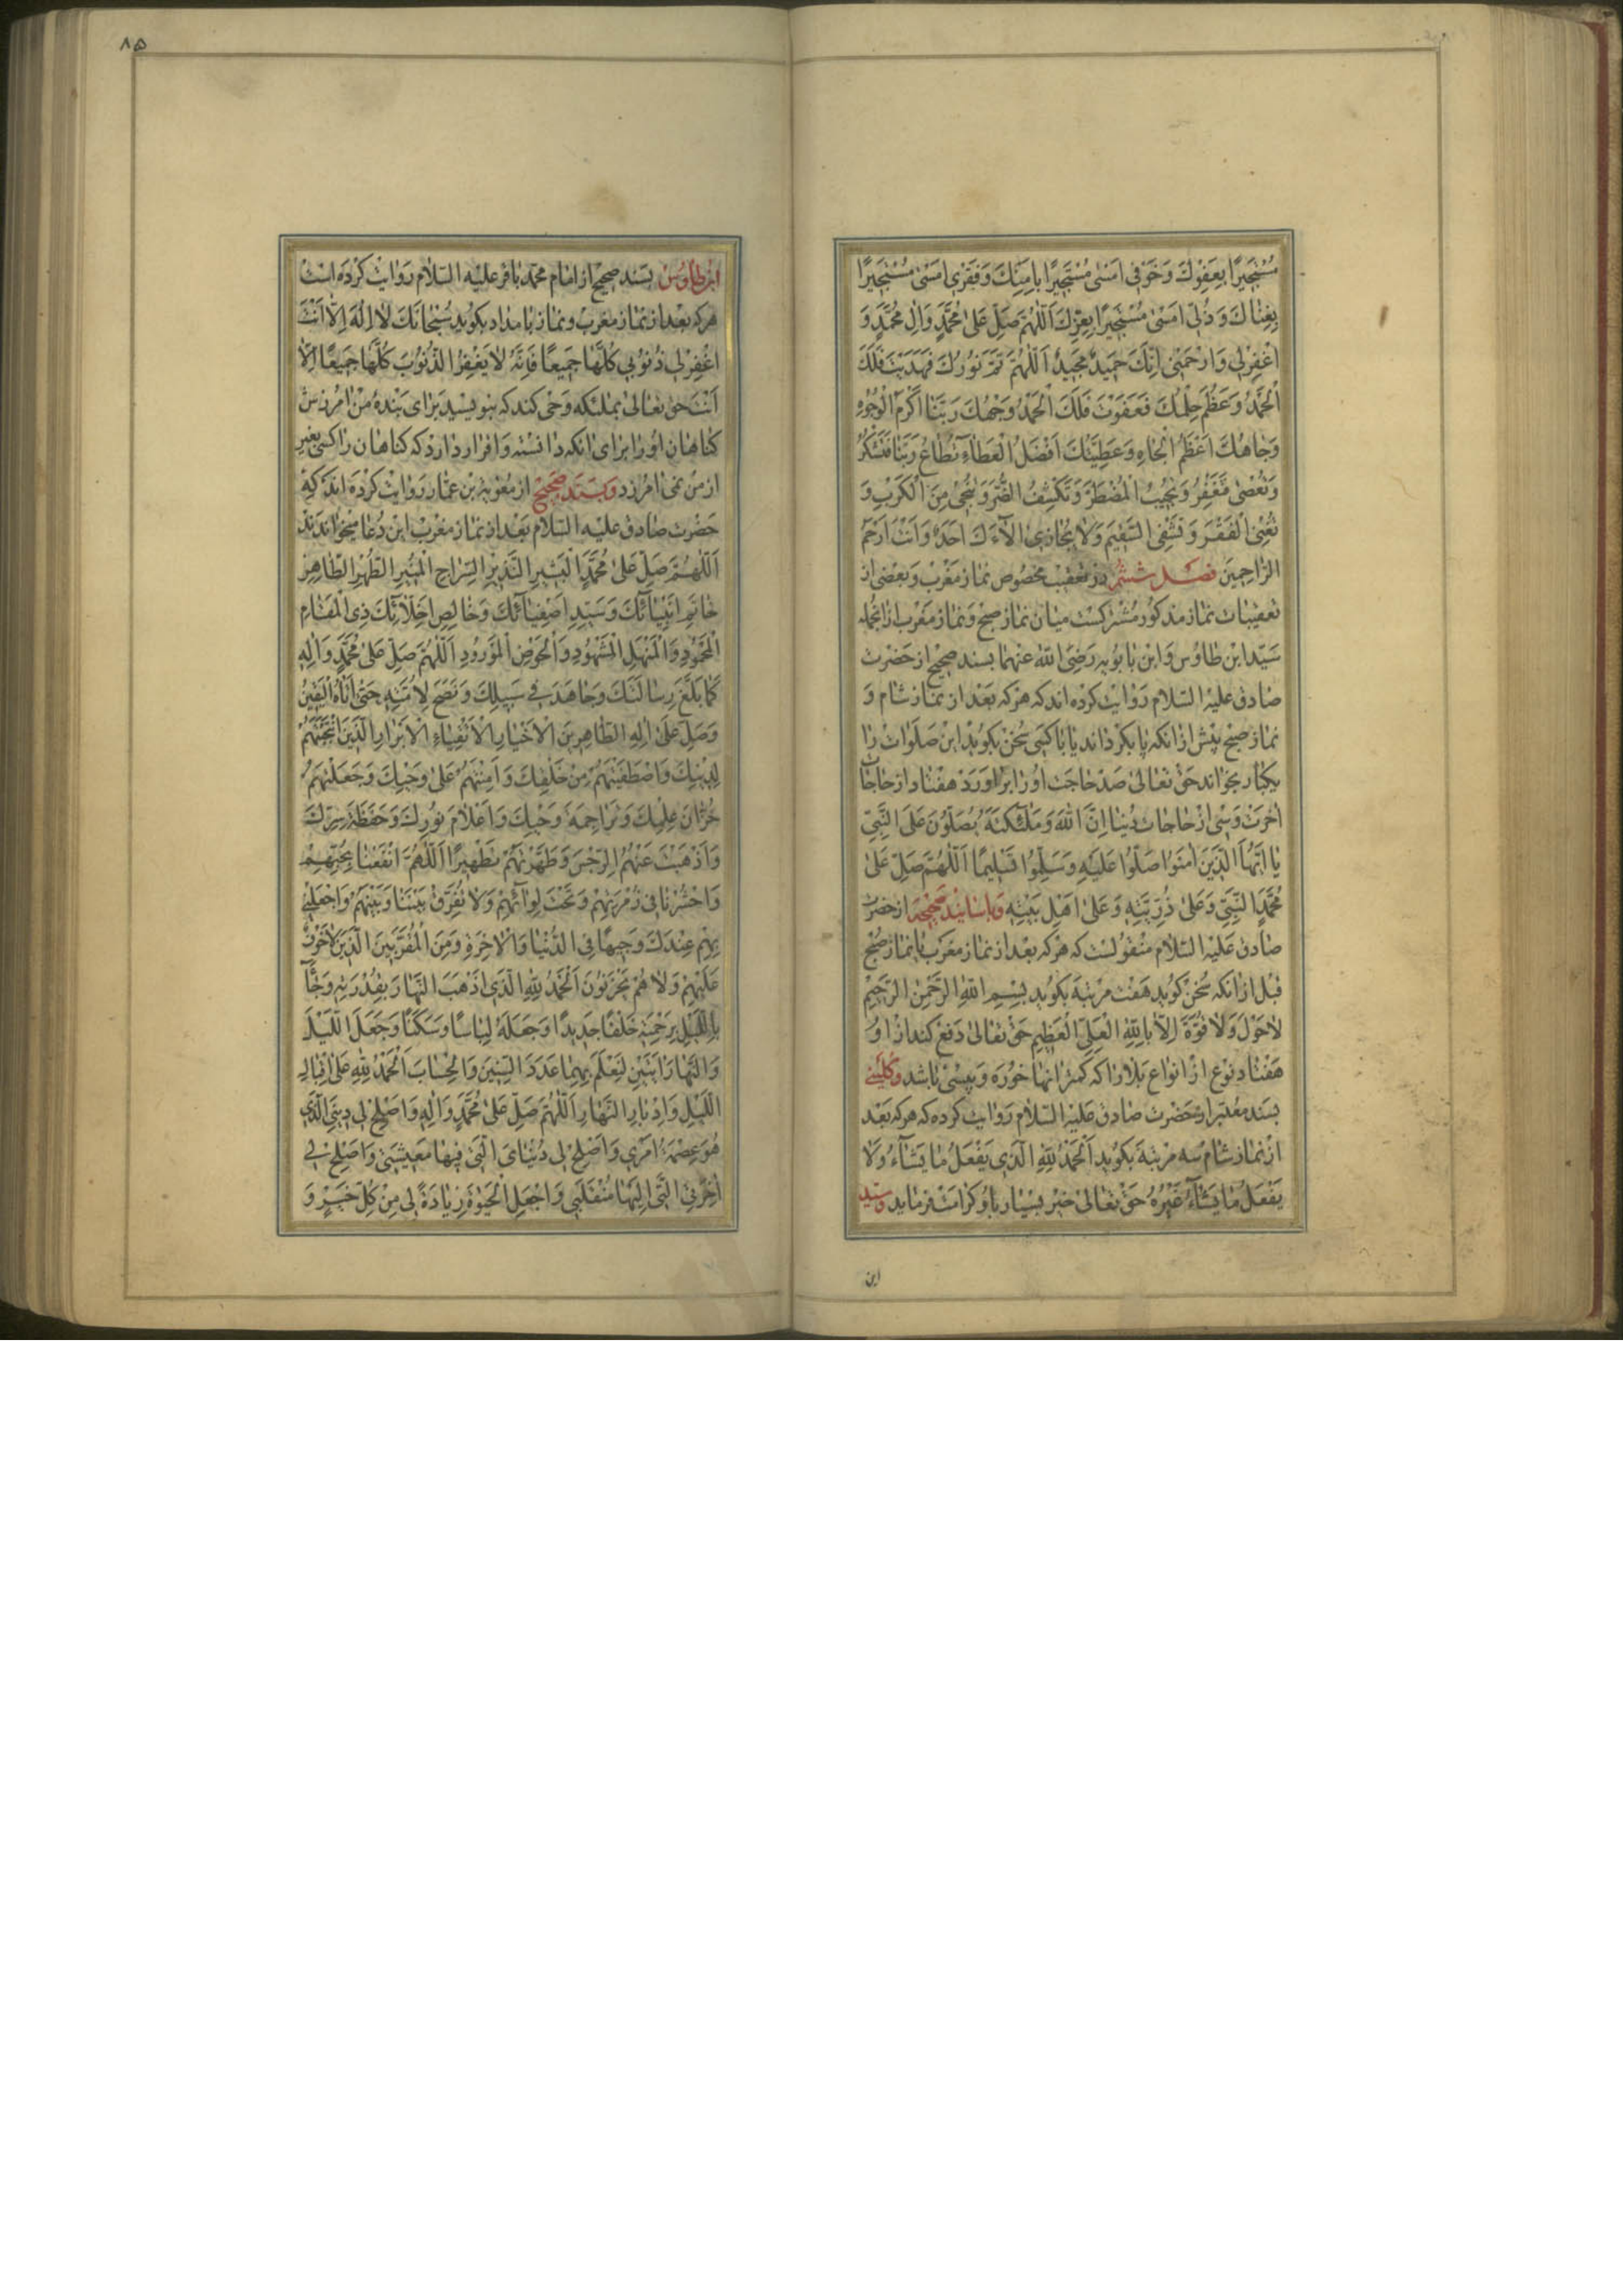 مُسْتَجِيرًا بِعَفْوِكَ وَخَوْفِي اَمْسىٰ مُسْتَجِيرًا بِاَمْنِكَ وَفَقْرِي اَمْسىٰ مُسْتَجِيرًا
بِغِنٰاكَ وَذُلِّي اَمْسىٰ مُسْتَجِيرًا بِعِزِّكَ اَللّٰهُمَّ صَلِّ عَلىٰ مُحَمَّدٍ وَاٰلِ مُحَمَّدٍ وَ
اغْفِرْلِي وَارْحَمْنِي اِنَّكَ حَمِيدٌ مَجِيدٌ اَللّٰهُمَّ تَمَّ نُورُكَ فَهَدَيْتَ فَلَكَ
الْحَمْدُ وَعَظُمَ حِلْمُكَ فَعَفَوْتَ فَلَكَ الْحَمْدُ وَجْهُكَ رَبَّنٰا اَكْرَمُ الْوُجُوهِ
وَجٰاهُكَ اَعْظَمُ الْجٰاهِ وَعَطِيَّتُكَ اَفْضَلُ الْعَطٰاءِ تُطٰاعُ رَبَّنٰا فَتَشْكُرُ
وَتُعْصىٰ فَتَغْفِرُ وَتُجِيبُ الْمُضْطَرَّ وَتَكْشِفُ الضُّرَّ وَتُنْجِي مِنَ الْكَرْبِ وَ
تُغْنِي الْفَقْرَ وَتَشْفِي السَّقِيمَ وَلاٰ يُجٰازِي اٰلاٰءَكَ اَحَدٌ وَاَنْتَ اَرْحَمُ
الرّٰاحِمِينَ فصل ششم در تعقیب مخصوص نماز مغرب و بعضی از
تعقیبات نماز مذکور مشترکست میان نماز صبح و نماز مغرب ازانجمله
سیّد ابن طاوس و ابن بابویه رضی الله عنهما بسند صحیح از حضرت
صادق علیه السلام روایت کرده اند که هر که بعد از نماز شام و
نماز صبح پیش از انکه پا بکرداند یا با کسی سخن بکوید این صلوات را
یکبار بخواند حق تعالی صد حاجت او را براورد هفتاد از حاجات
اخرت و سی از حاجات دنیا اِنَّ اللهَ وَمَلٰٓئِكَتَهُ يُصَلُّونَ عَلَى النَّبِيِّ
يٰا اَيُّهَا الَّذِينَ اٰمَنُوا صَلُّوا عَلَيْهِ وَسَلِّمُوا تَسْلِيمًا اَللّٰهُمَّ صَلِّ عَلىٰ
مُحَمَّدٍ النَّبِيِّ وَعَلىٰ ذُرِّيَّتِهِ وَعَلىٰ اَهْلِ بَيْتِهِ و باسانید صحیحه از حضرت
صادق علیه السلام منقولست که هر که بعد از نماز مغرب یا نماز صبح
قبل از انکه سخن کوید هفت مرتبه بکوید بِسْمِ اللهِ الرَّحْمٰنِ الرَّحِيمِ
لاٰ حَوْلَ وَلاٰ قُوَّةَ اِلاّٰ بِاللهِ الْعَلِيِّ الْعَظِيمِ حق تعالی دفع کند از او
هفتاد نوع از انواع بلا را که کمتر انها خوره و پیسی باشد و کلینی
بسند معتبر از حضرت صادق علیه السلام روایت کرده که هر که بعد
از نماز شام سه مرتبه بکوید اَلْحَمْدُ لِلّٰهِ الَّذِي يَفْعَلُ مٰا يَشٰآءُ وَلاٰ
يَفْعَلُ مٰا يَشٰآءُ غَيْرُهُ حق تعالی خیر بسیار باو کرامت فرماید و سید
ابن
٨۵
ابن طاوس بسند صحیح از امام محمد باقر علیه السلام روایت کرده است
هر که بعد از نماز مغرب و نماز بامداد بکوید سُبْحٰانَكَ لاٰ اِلٰهَ اِلاّٰ اَنْتَ
اغْفِرْلِي ذُنُوبِي كُلَّهٰا جَمِيعًا فَاِنَّهُ لاٰ يَغْفِرُ الذُّنُوبَ كُلَّهٰا جَمِيعًا اِلاّٰ
اَنْتَ حق تعالی بملئکه وحی کند که بنویسید برای بنده من امرزش
کناهان او را برای انکه دانسته و اقرار دارد که کناهان را کسی بغیر
از من نمی امرزد و بسند صحیح از معویة بن عمّار روایت کرده اند که
حضرت صادق علیه السلام بعد از نماز مغرب این دعا میخواندند
اَللّٰهُمَّ صَلِّ عَلىٰ مُحَمَّدٍ الْبَشِيرِ النَّذِيرِ السِّرٰاجِ الْمُنِيرِ الطُّهْرِ الطّٰاهِرِ
خٰاتَمِ اَنْبِيٰآئِكَ وَسَيِّدِ اَصْفِيٰآئِكَ وَخٰالِصِ اَخِلّاٰئِكَ ذِي الْمَقٰامِ
الْمَحْمُودِ وَالْمَنْهَلِ الْمَشْهُودِ وَالْحَوْضِ الْمَوْرُودِ اَللّٰهُمَّ صَلِّ عَلىٰ مُحَمَّدٍ وَاٰلِهِ
كَمٰا بَلَّغَ رِسٰالَتَكَ وَجٰاهَدَ فِي سَبِيلِكَ وَنَصَحَ لِاُمَّتِهِ حَتّىٰ اَتٰاهُ الْيَقِينُ
وَصَلِّ عَلىٰ اٰلِهِ الطّٰاهِرِينَ الْاَخْيٰارِ الْاَتْقِيٰاءِ الْاَبْرٰارِ الَّذِينَ انْتَجَبْتَهُمْ
لِدِينِكَ وَاصْطَفَيْتَهُمْ مِنْ خَلْقِكَ وَاَمِنْتَهُمْ عَلىٰ وَحْيِكَ وَجَعَلْتَهُمْ
خُزّٰانَ عِلْمِكَ وَتَرٰاجِمَةَ وَحْيِكَ وَاَعْلاٰمَ نُورِكَ وَحَفَظَةَ سِرِّكَ
وَاَذْهَبْتَ عَنْهُمُ الرِّجْسَ وَطَهَّرْتَهُمْ تَطْهِيرًا اَللّٰهُمَّ انْفَعْنٰا بِحُبِّهِمْ
وَاحْشُرْنٰا فِي زُمْرَتِهِمْ وَتَحْتَ لِوٰآئِهِمْ وَلاٰ تُفَرِّقْ بَيْنَنٰا وَبَيْنَهُمْ وَاجْعَلْنِي
بِهِمْ عِنْدَكَ وَجِيهًا فِي الدُّنْيٰا وَالْاٰخِرَةِ وَمِنَ الْمُقَرَّبِينَ الَّذِينَ لاٰ خَوْفٌ
عَلَيْهِمْ وَلاٰ هُمْ يَحْزَنُونَ اَلْحَمْدُ لِلّٰهِ الَّذِي اَذْهَبَ النَّهٰارَ بِقُدْرَتِهِ وَجٰآءَ
بِاللَّيْلِ بِرَحْمَتِهِ خَلْقًا جَدِيدًا وَجَعَلَهُ لِبٰاسًا وَسَكَنًا وَجَعَلَ اللَّيْلَ
وَالنَّهٰارَ اٰيَتَيْنِ لِيُعْلَمَ بِهِمٰا عَدَدَ السِّنِينَ وَالْحِسٰابَ اَلْحَمْدُ لِلّٰهِ عَلىٰ اِقْبٰالِ
اللَّيْلِ وَاِدْبٰارِ النَّهٰارِ اَللّٰهُمَّ صَلِّ عَلىٰ مُحَمَّدٍ وَاٰلِهِ وَاَصْلِحْ لِي دِينِيَ الَّذِي
هُوَ عِصْمَةُ اَمْرِي وَاَصْلِحْ لِي دُنْيٰايَ الَّتِي فِيهٰا مَعِيشَتِي وَاَصْلِحْ لِي
اٰخِرَتِيَ الَّتِي اِلَيْهٰا مُنْقَلَبِي وَاجْعَلِ الْحَيٰوةَ زِيٰادَةً لِي مِنْ كُلِّ خَيْرٍ وَ